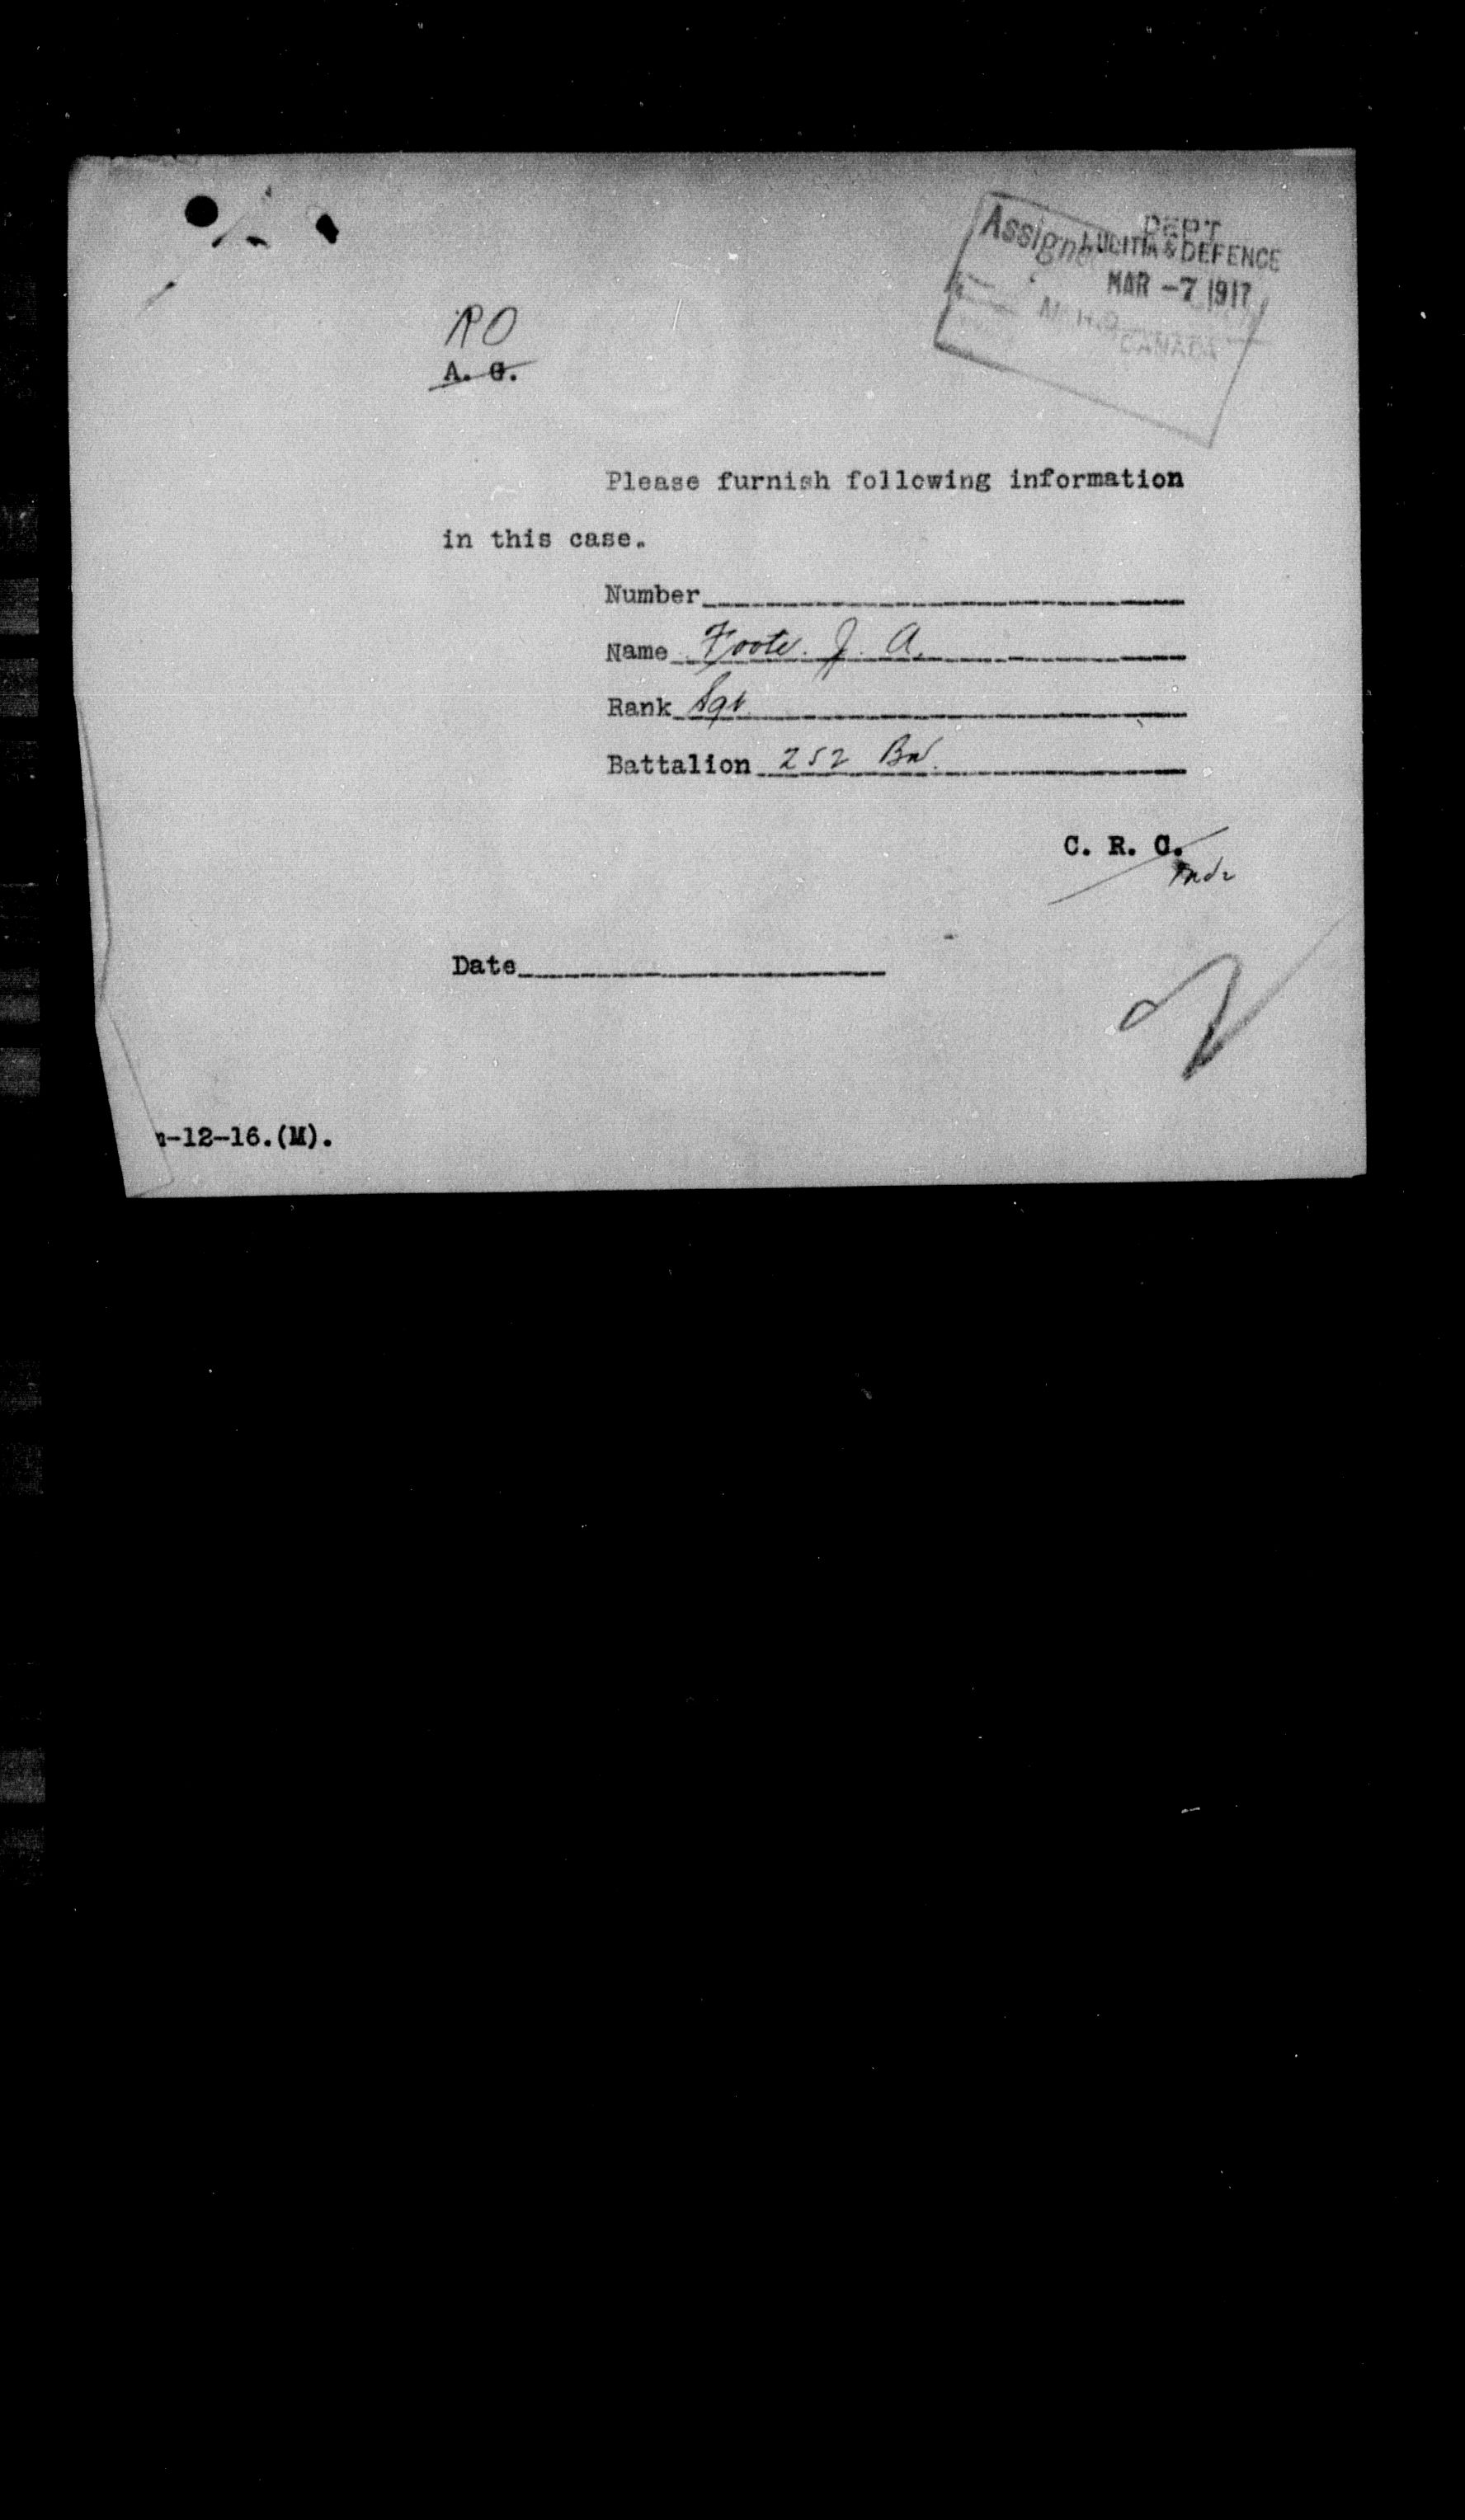 DEPT
MILITIA & DEFENCE
MAR -7 1917
CANADA
RO
A. G.
Please furnish following information
in this case.
Number
Name Foote. J. A.
Rank Sgt
Battalion 252 Bn.
C. R. C.
Date
-12-16.(M).